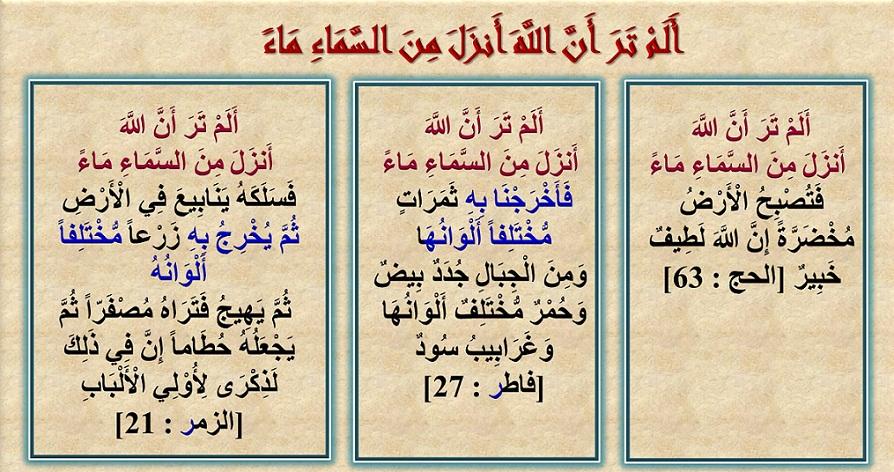 أَلَمْ تَرَ أَنَّ اللَّهَ أَنزَلَ مِنَ السَّمَاءِ مَاءً
أَلَمْ تَرَ أَنَّ اللَّهَ
أَنزَلَ مِنَ السَّمَاءِ مَاءً
فَتُصْبِحُ الْأَرْضُ
مُخْضَرَّةً إِنَّ اللَّهَ لَطِيفٌ
خَبِيرٌ [الحج : 63]
أَلَمْ تَرَ أَنَّ اللَّهَ
أَنزَلَ مِنَ السَّمَاءِ مَاءً
فَأَخْرَجْنَا بِهِ ثَمَرَاتٍ
مُّخْتَلِفاً أَلْوَانُهَا
وَمِنَ الْجِبَالِ جُدَدٌ بِيضٌ
وَحُمْرٌ مُّخْتَلِفٌ أَلْوَانُهَا
وَغَرَابِيبُ سُودٌ
[فاطر : 27]
أَلَمْ تَرَ أَنَّ اللَّهَ
أَنزَلَ مِنَ السَّمَاءِ مَاءً
فَسَلَكَهُ يَنَابِيعَ فِي الْأَرْضِ
ثُمَّ يُخْرِجُ بِهِ زَرْعاً مُّخْتَلِفاً
أَلْوَانُهُ
ثُمَّ يَهِيجُ فَتَرَاهُ مُصْفَرّاً ثُمَّ
يَجْعَلُهُ حُطَاماً إِنَّ فِي ذَلِكَ
لَذِكْرَى لِأُوْلِي الْأَلْبَابِ
[الزمر : 21]